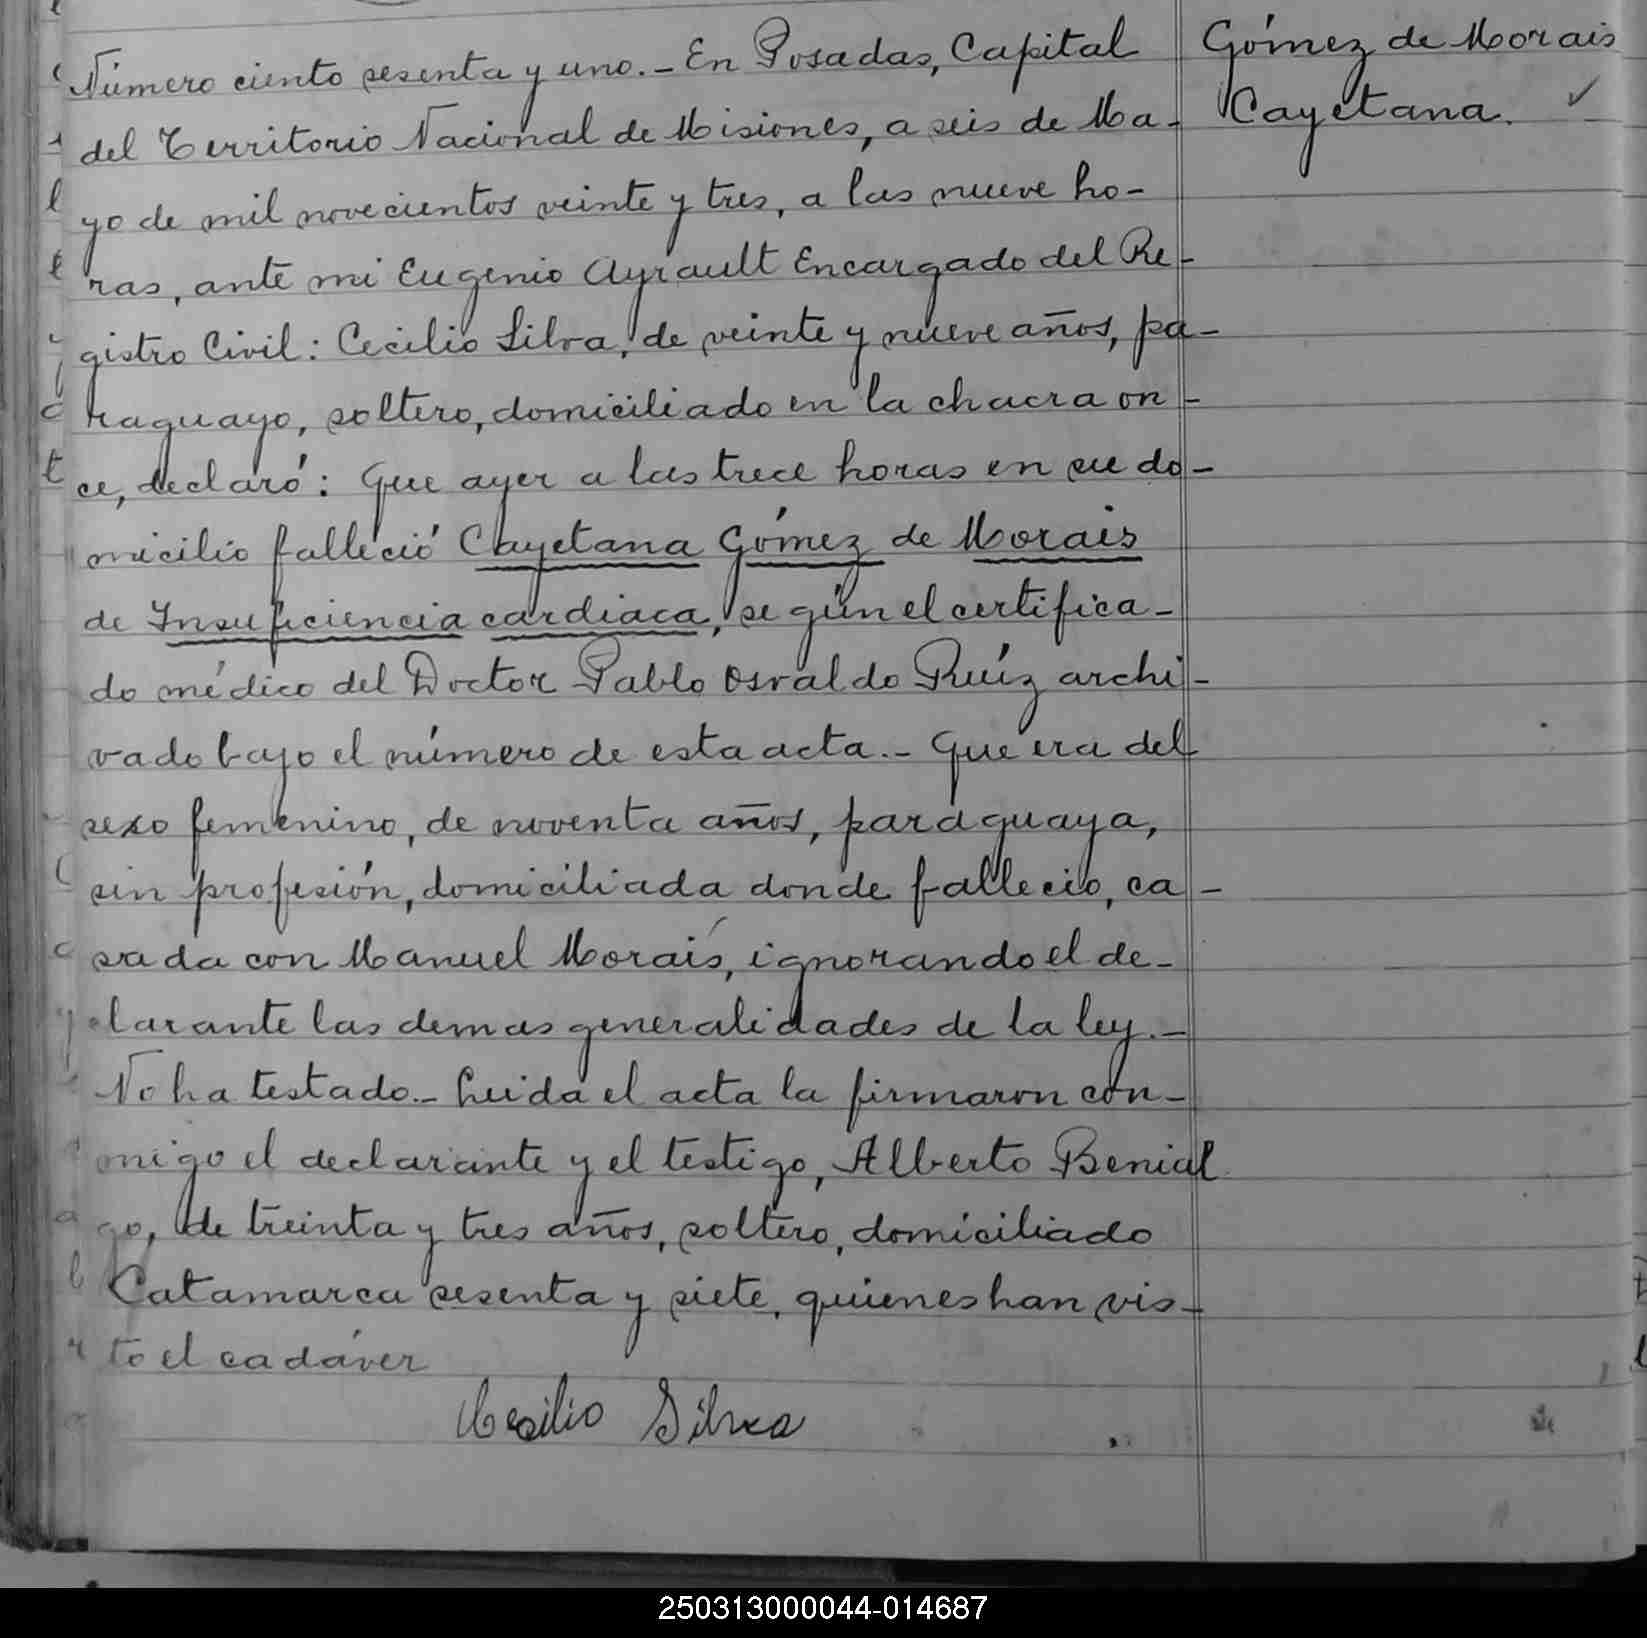 Número ciento sesenta y uno.- En Posadas, Capital
del Territorio Nacional de Misiones, a seis de Ma-
yo de mil novecientos veinte y tres, a las nueve ho-
ras, ante mi Eugenio Ayrault Encargado del Re-
gistro Civil: Cecilio Silva, de veinte y nueve años, pa-
raguayo, soltero, domiciliado en la chacra on-
ce, declaró: Que ayer a las trece horas en su do-
micilio falleció Cayetana Gómez de Morais
de Insuficiencia cardiaca, según el certifica-
do médico del Doctor Pablo Osvaldo Ruíz archi-
vado bajo el número de esta acta.- Que era del
sexo femenino, de noventa años, paraguaya,
sin profesión, domiciliada donde fallecio, ca-
sada con Manuel Morais, ignorando el de-
clarante las demas generalidades de la ley.-
No ha testado.- Leida el acta la firmaron con-
migo el declarante y el testigo, Alberto Benial
go, de treinta y tres años, soltero, domiciliado
Catamarca sesenta y siete, quienes han vis-
to el cadáver
Cecilio Silva
Gómez de Morais
Cayetana.
250313000044-014687